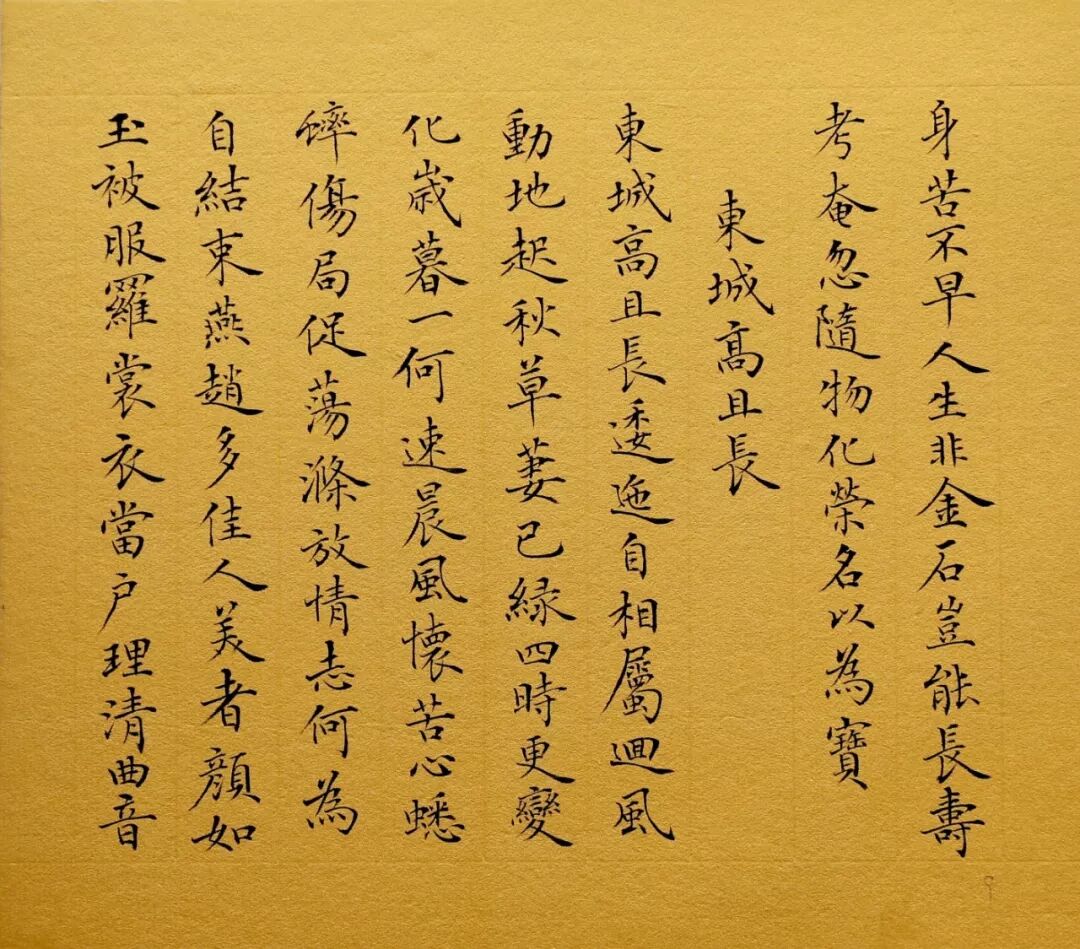 身苦不早人生非金石豈能長壽
考奄忽隨物化榮名以為寶
東城高且長
東城高且長逶迤自相屬迴風
動地起秋草萋已緑四時更變
化歲暮一何速晨風懷苦心蟋
蟀傷局促蕩滌放情志何為
自結束燕趙多佳人美者顏如
玉被服羅裳衣當户理清曲音